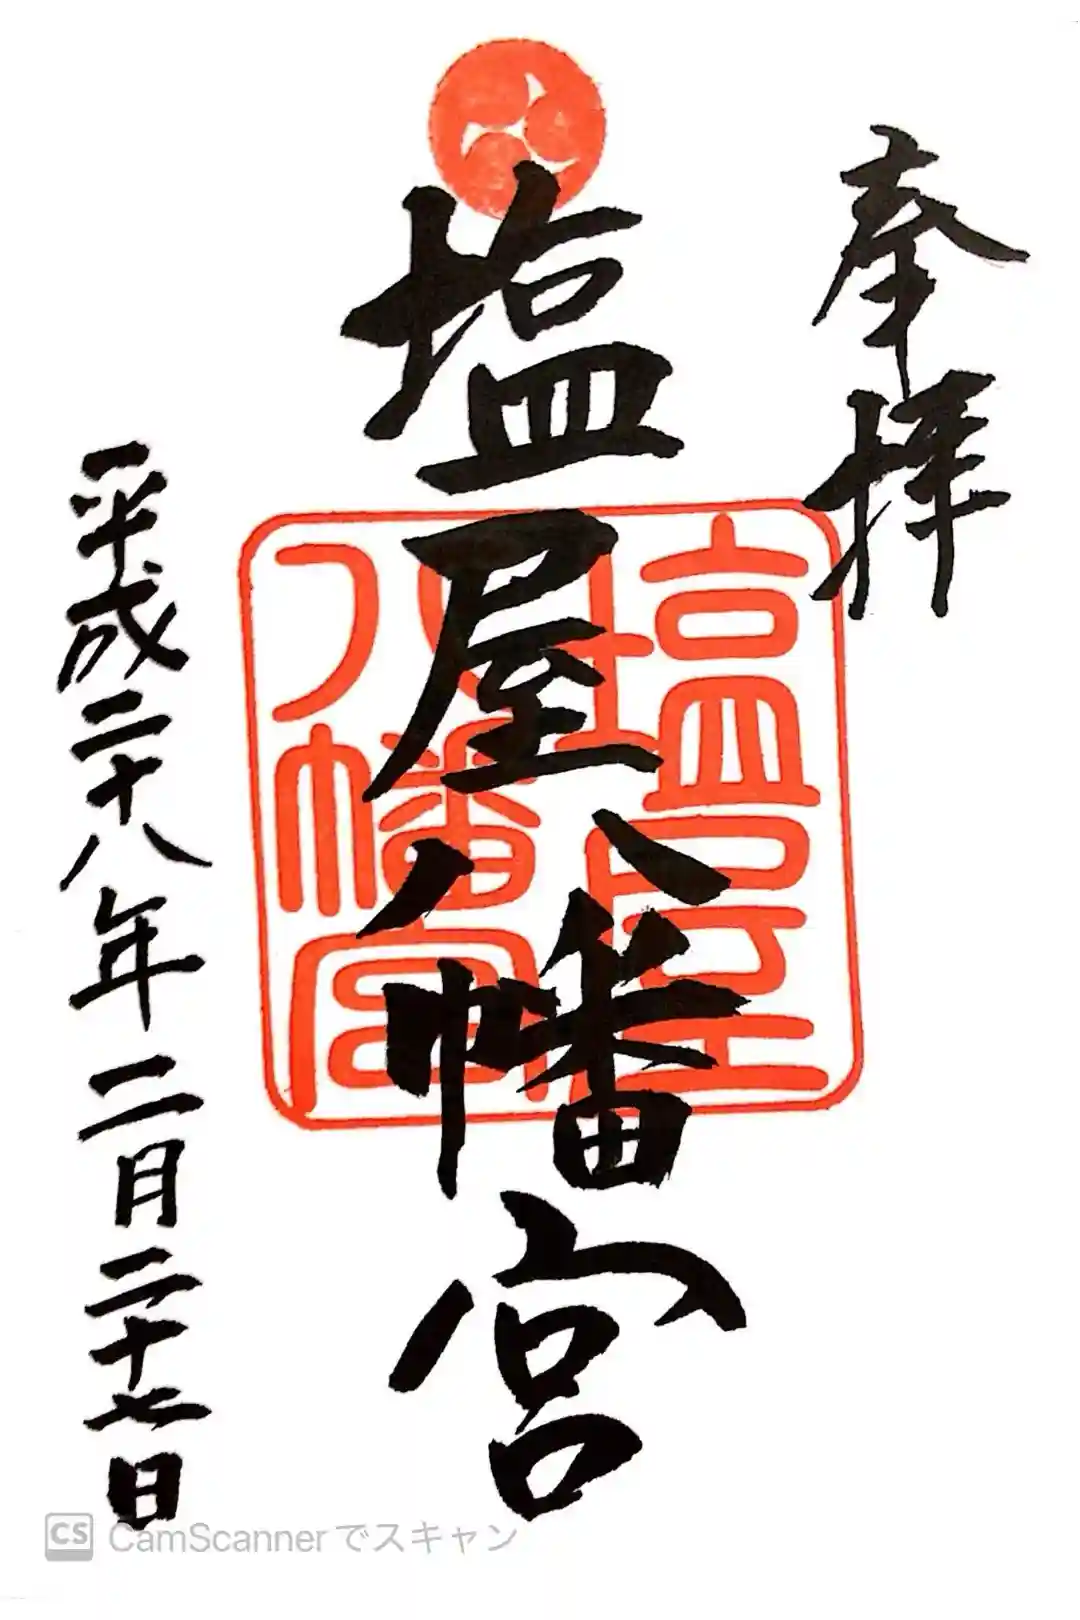 奉拝
塩屋八幡宮
塩屋
八幡宮
平成二十八年二月二十七日
CS CamScannerでスキャン